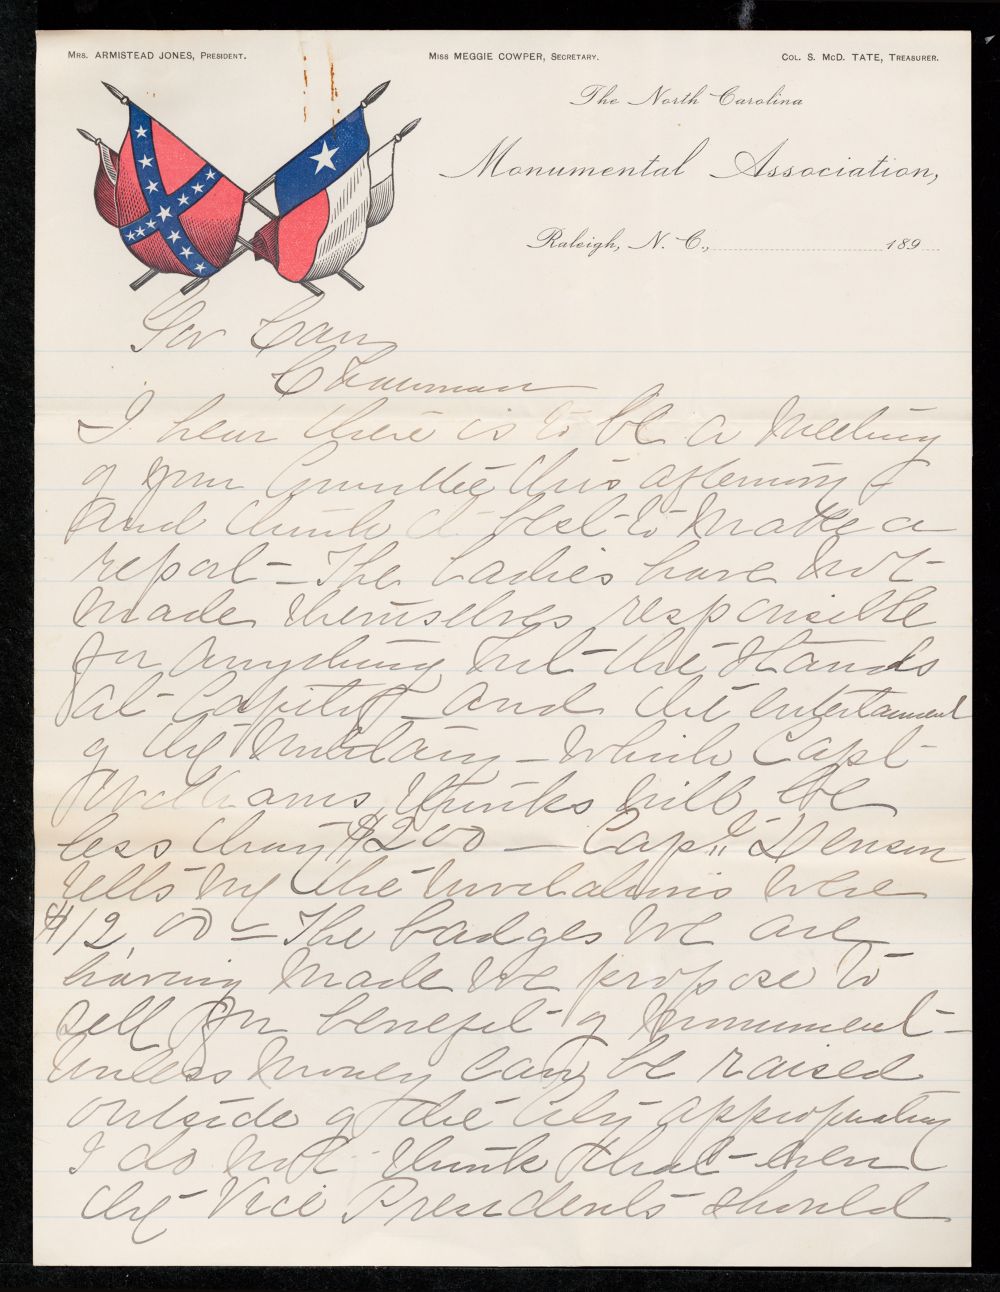 Mrs. ARMISTEAD JONES, President.
Miss MEGGIE COWPER, Secretary.
Col. S. McD. TATE, Treasurer.
The North Carolina
Monumental Association,
Raleigh, N. C., 189
Gov Carr
Chairman
I hear there is to be a meeting
of your Committee this afternoon &
and think it best to make a
report - The Ladies have not
made themselves responsible
for anything but the stands
at Capitol and the entertainment
of the Military - which Capt
Williams thinks will be
less than $200 - Capt Denson
tells me the invitations were
$12.00 - The badges we are
having made we propose to
sell for benefit of monument -
Unless money can be raised
outside of the City appropriation
I do not think that even
the Vice Presidents should